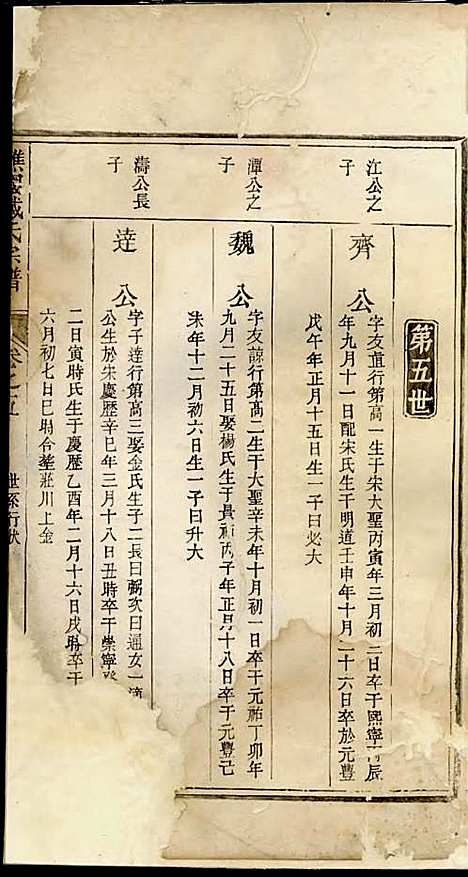 第五世
江公之
子
齊公
字友直行第高一生于宋大聖丙寅年三月初二日卒于熙寧丙辰
年九月十一日配宋氏生于明道壬申年十月二十六日卒於元豐
戊午年正月十五日生一子曰必大
潭公之
子
魏公
字友諒行第高二生于大聖辛未年十月初一日卒于元祐丁卯年
九月二十五日娶楊氏生于景祐丙子年正月十八日卒于元豐己
未年十二月初六日生一子曰升大
濤公長
子
達公
字子達行第高三娶金氏生子二長曰弼次曰通女一適
公生於宋慶歷辛巳年三月十八日丑時卒于崇寧
二日寅時氏生于慶歷乙酉年二月十六日戌時卒于
六月初七日巳時合葬莊川上金
戴氏宗譜
卷之五
世系行狀